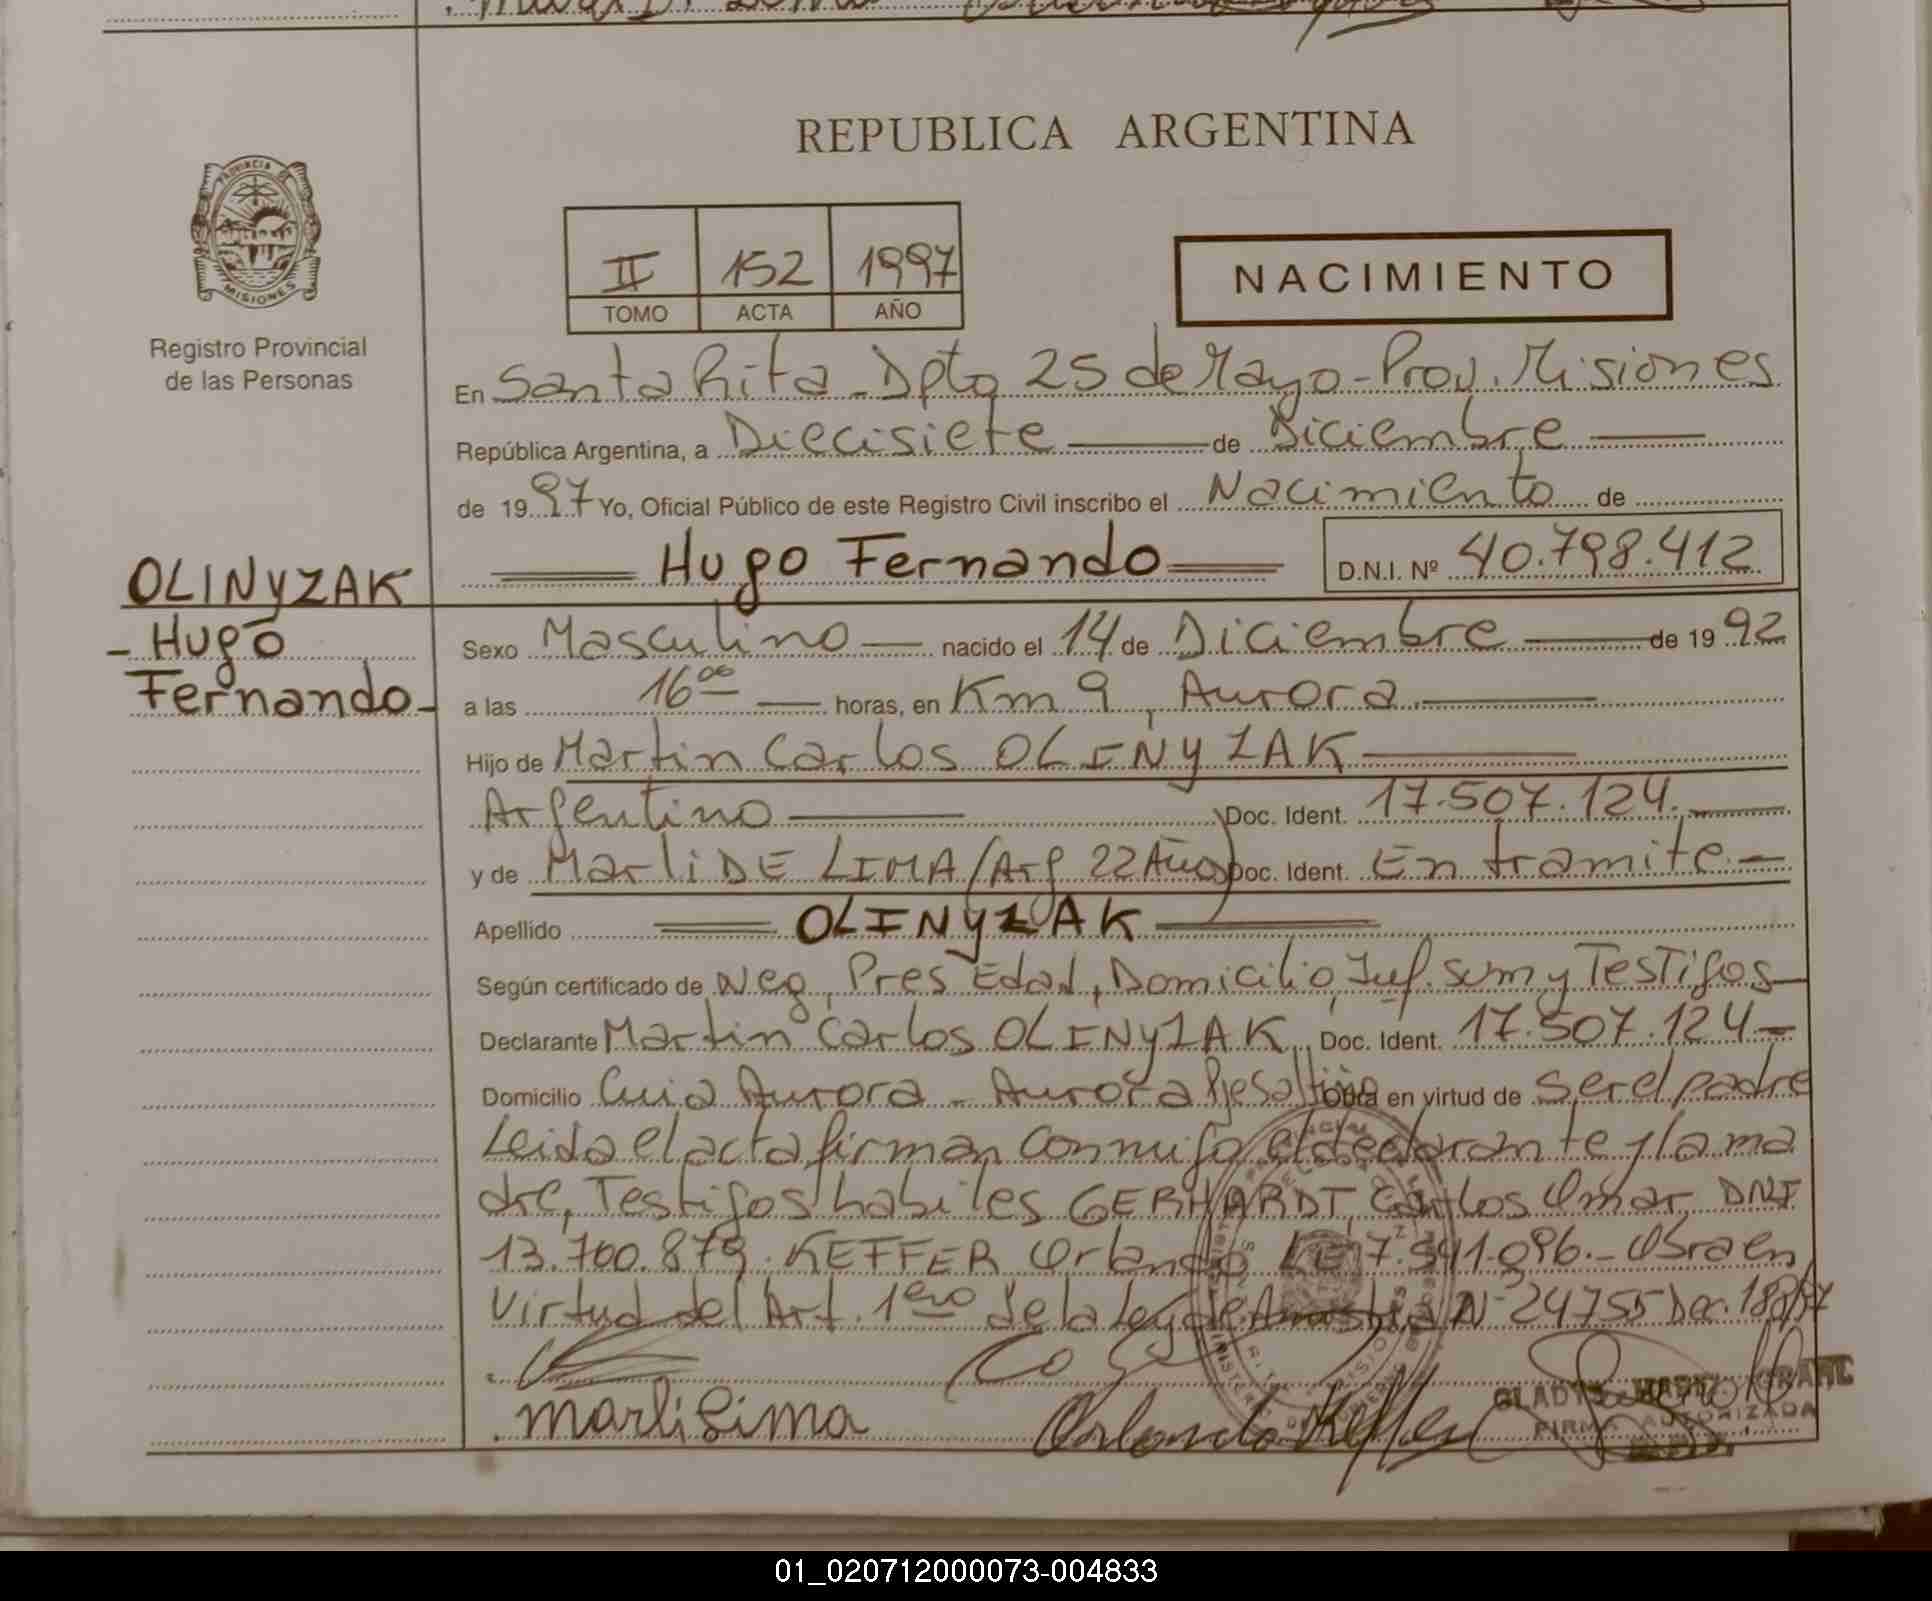 REPUBLICA ARGENTINA
PROVINCIA DE
MISIONES
Registro Provincial
de las Personas
II 152 1997
TOMO ACTA AÑO
NACIMIENTO
En Santa Rita - Dpto 25 de Mayo - Prov. Misiones
República Argentina, a Diecisiete de Diciembre
de 1997 Yo, Oficial Público de este Registro Civil inscribo el Nacimiento de
Hugo Fernando D.N.I. Nº 40.798.412
OLINYZAK
- Hugo
Fernando -
Sexo Masculino nacido el 14 de Diciembre de 1992
a las 16 oo horas, en Km 9, Aurora
Hijo de Martin Carlos OLINYZAK
Argentino Doc. Ident. 17.507.124.
y de Marli DE LIMA (Arg 22 Años) Doc. Ident. En tramite -
Apellido OLINYZAK
Según certificado de Neg, Pres Edad, Domicilio, Inf. sum y Testigos
Declarante Martin Carlos OLINYZAK Doc. Ident. 17.507.124 -
Domicilio Aurora - Aurora Obra en virtud de ser el padre
Leida el acta firman conmigo el declarante y la ma
dre, Testigos habiles GERHARDT, Carlos Omar DNI
13.700.879. KEFFER Orlando LE 7.541.096. - Obra en
Virtud del Art. 1ero de la Ley de Amnistia N 24755 Dec. 188/97
marli Lima
Orlando Keffer
GLADYS
FIRMA AUTORIZADA
01_020712000073-004833